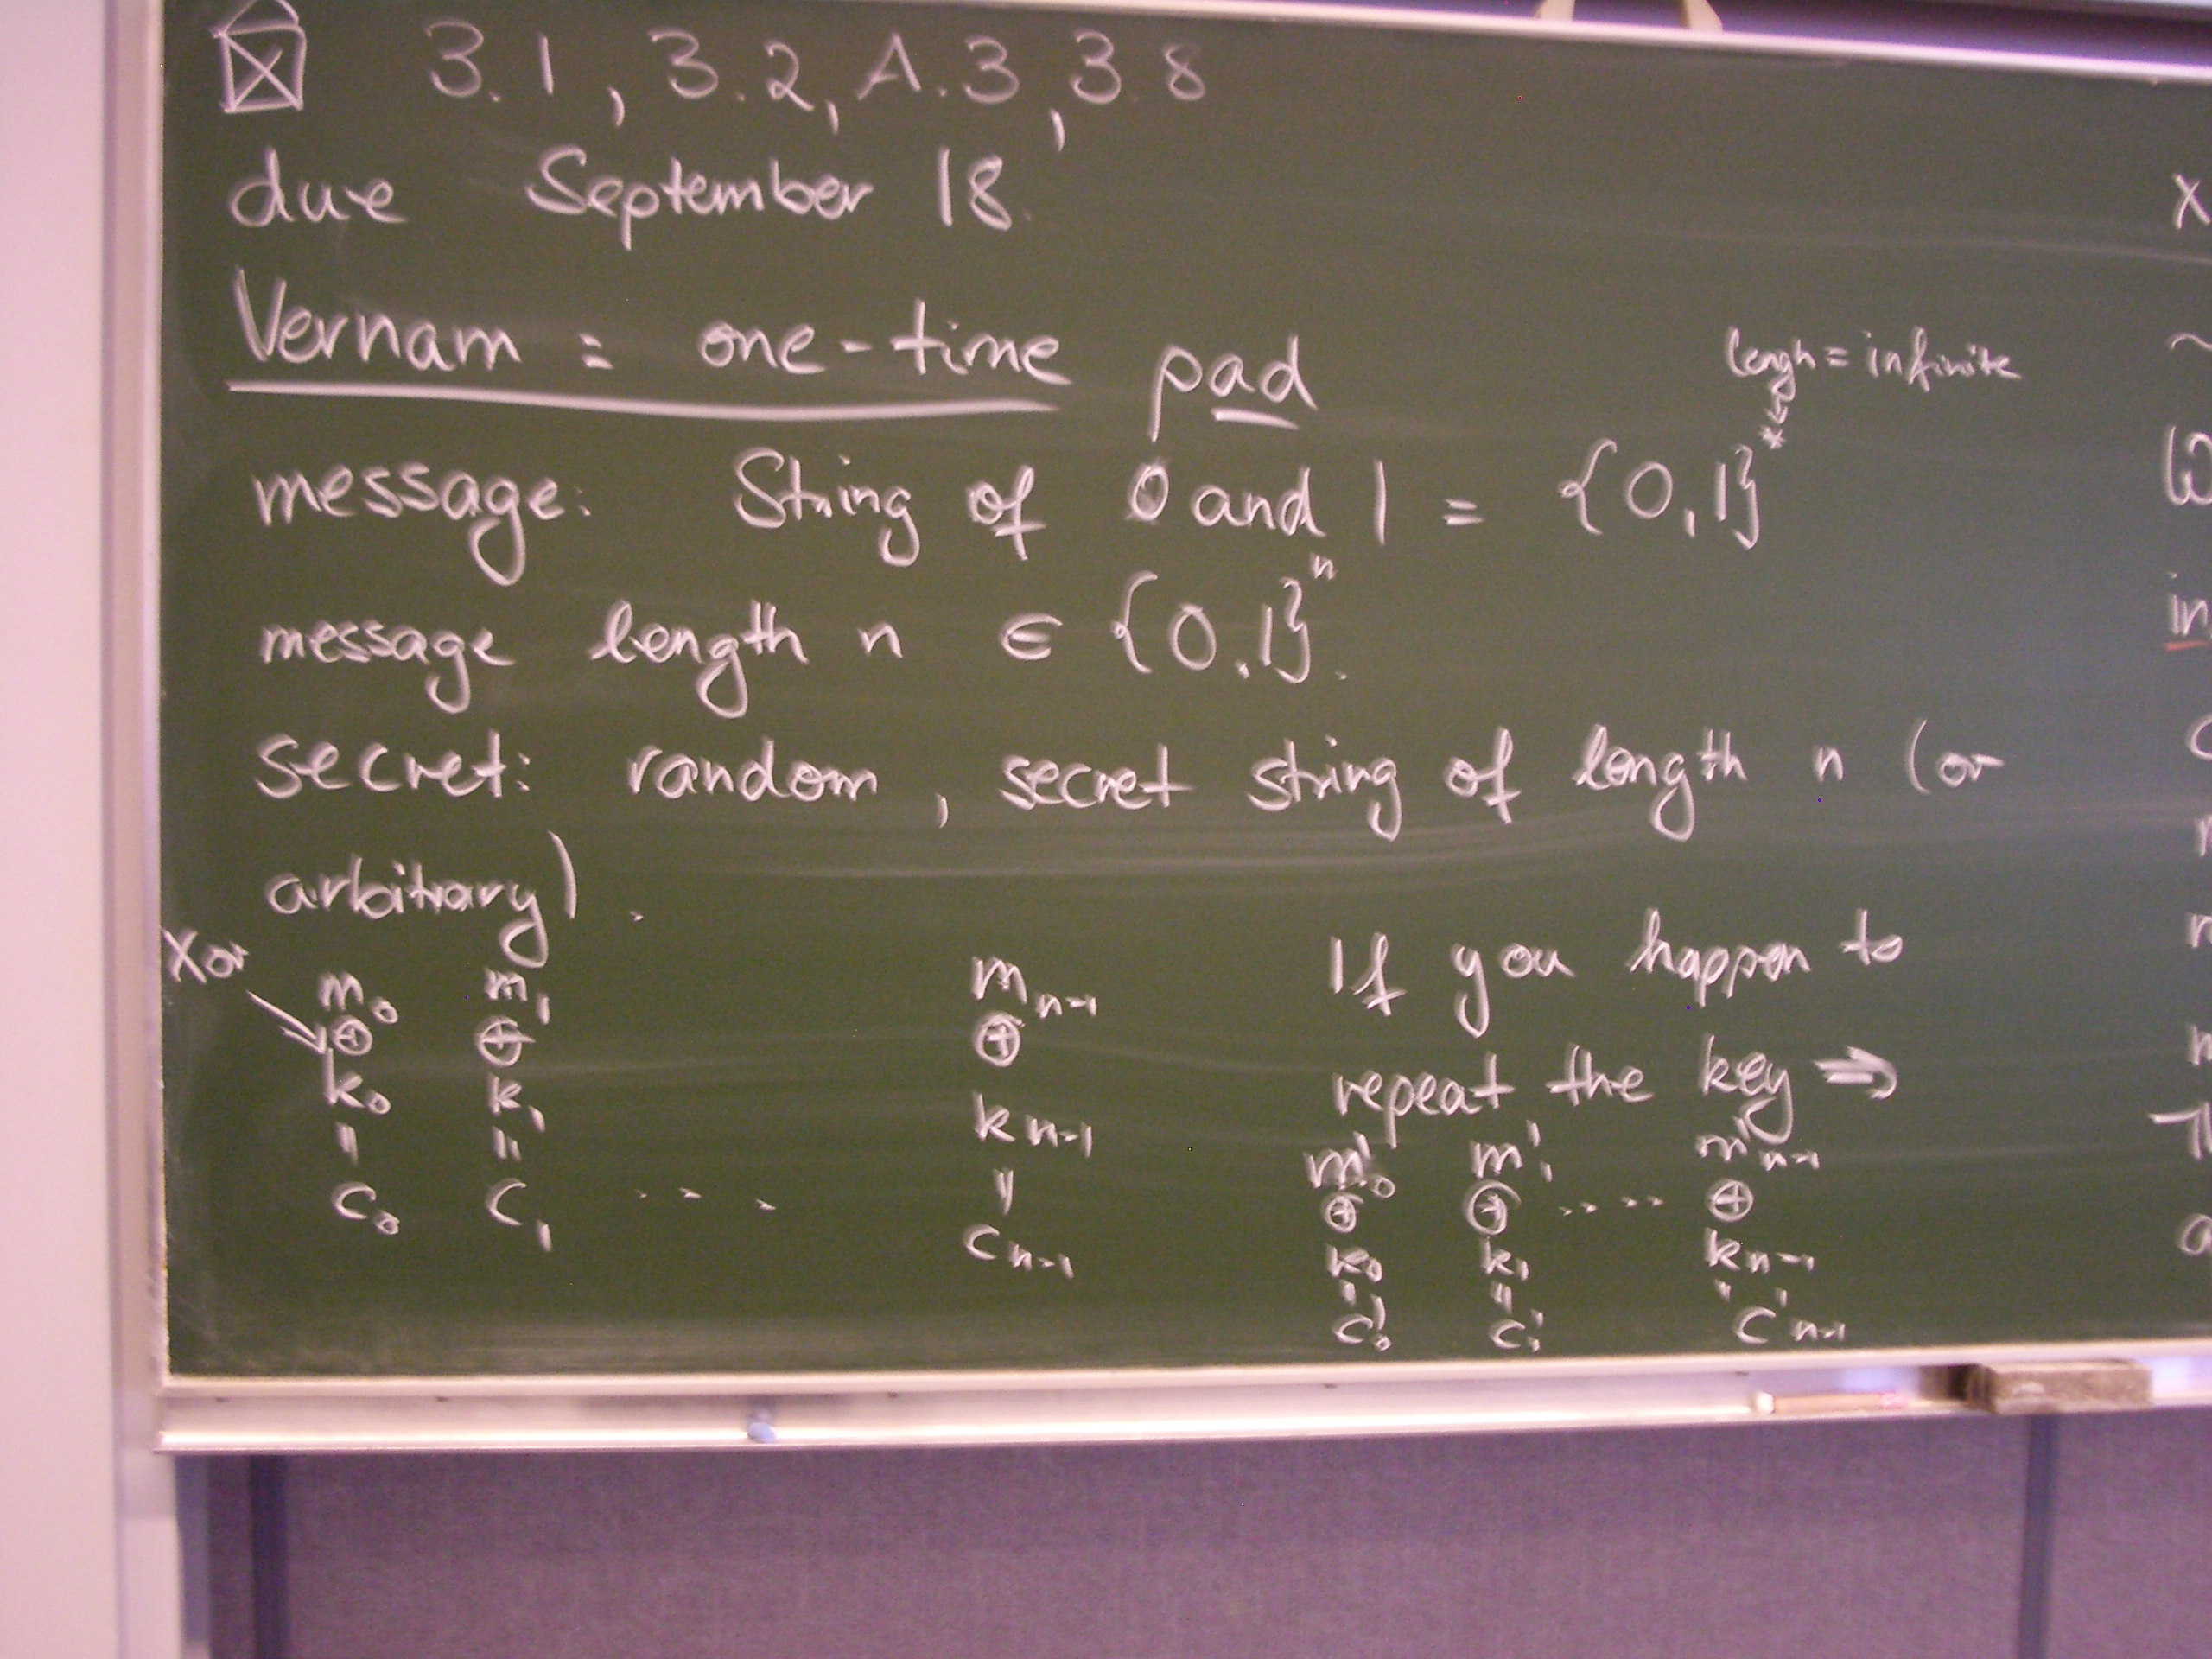 3.1, 3.2, A.3, 3.8
due September 18.
Vernam = one-time pad
lengh = infinite
message: String of 0 and 1 = {0,1}*
message length n ∈ {0,1}ⁿ.
secret: random, secret string of length n (or
arbitrary).
Xor
m₀ m₁ mₙ₋₁
⊕ ⊕ ⊕
k₀ k₁ kₙ₋₁
" " "
c₀ c₁ .... cₙ₋₁
If you happen to
repeat the key ⇒
m'₀ m'₁ m'ₙ₋₁
⊕ ⊕ .... ⊕
k₀ k₁ kₙ₋₁
" " "
c'₀ c'₁ c'ₙ₋₁
X
in